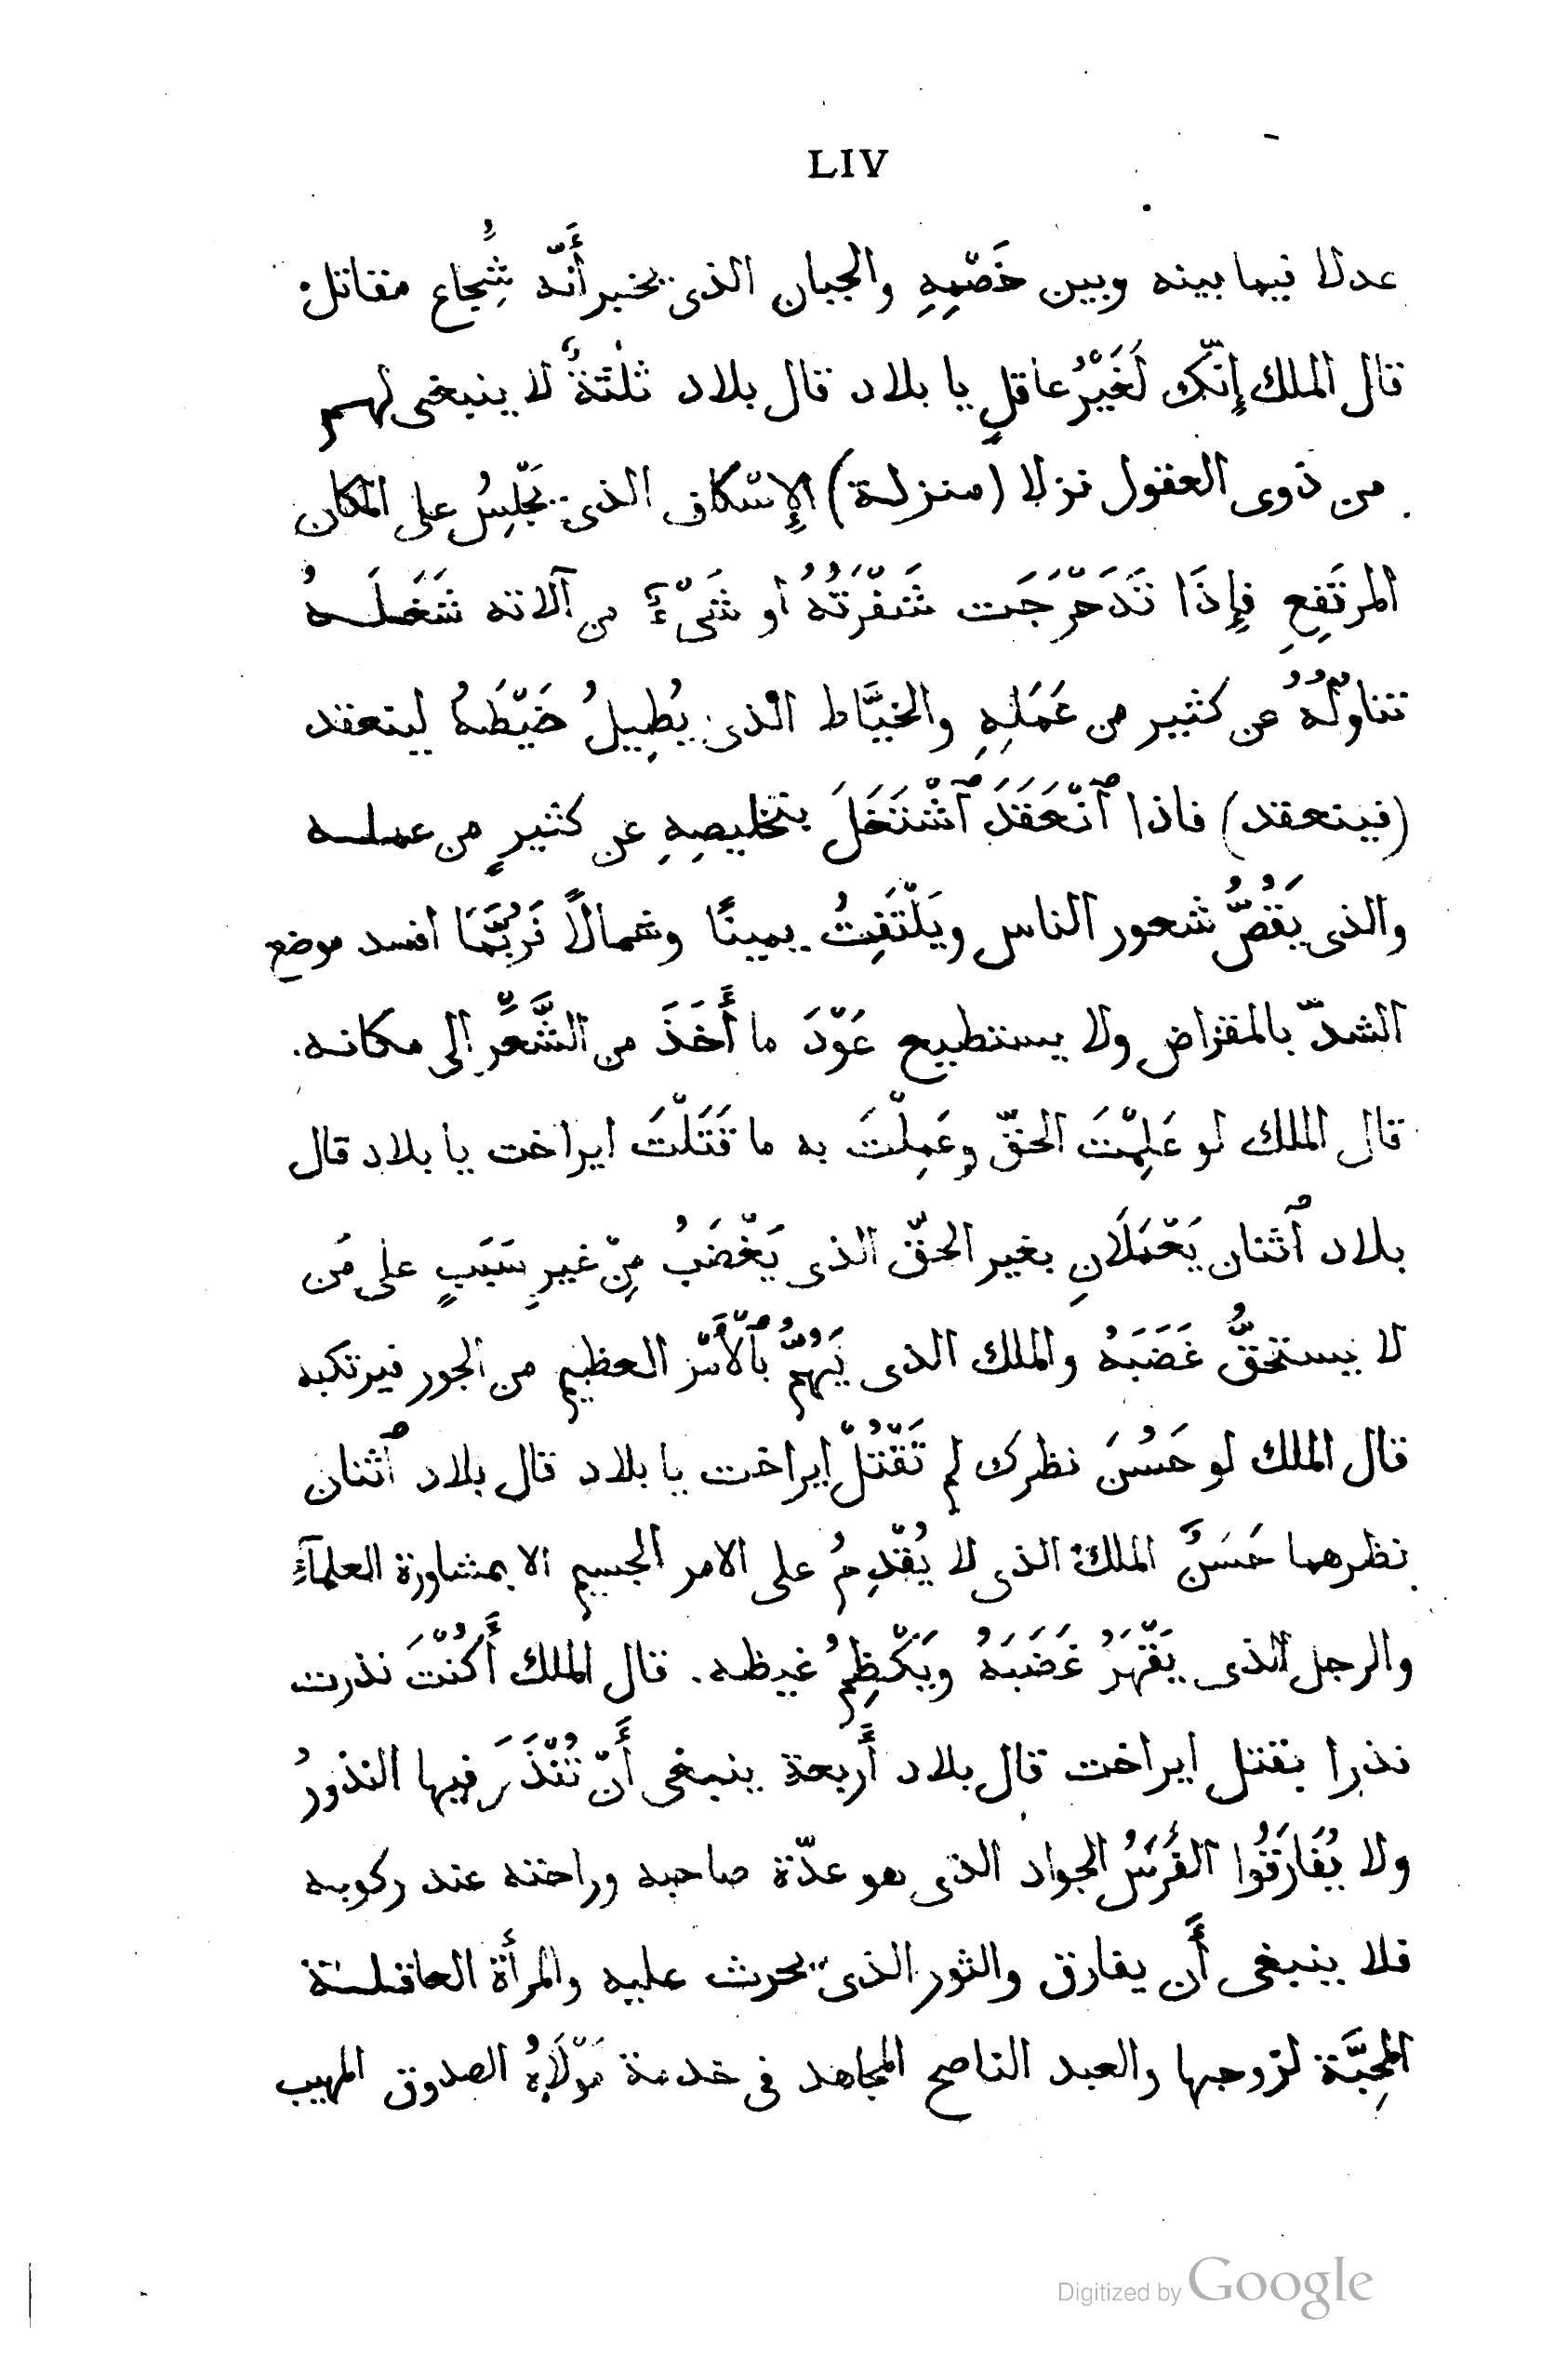 LIV
عدلا فيما بينه وبين خَصْمِهِ والجبان الذى يخبر أَنّه شُِجاع مقاتل
قال الملك إِنّك لَغَيْرُ عاقلٍ يا بلاد قال بلاد ثلٰثةٌ لا ينبغى لهم
من ذوى العقول نزلا (منزلة) الإِسْكاف الذى يَجْلِسُ على المكان
المرتَفِعِ فإِذَا تَدَحْرَجَت شَفْرَتُهُ او شَىْءٌ من آلاته شَغَلَهُ
تناوُلُهُ عن كثير من عَمَلِهِ والخيَّاط الذى يُطِيلُ خَيْطَهُ ليتعقد
(فيتعقد) فاذا ٱنْعَقَدَ ٱشْتَغَلَ بتخليصِهِ عن كثيرٍ من عمله
والذى يَقُصُّ شعور الناس ويَلْتَفِتُ يمينًا وشمالاً فَرُبَّمَا افسد موضع
الشدّ بالمقراض ولا يستطيع عَوْدَ ما أَخَذَ من الشَّعَْرِ الى مكانه.
قال الملك لو عَلِمْتَ الحقّ وعَمِلْتَ به ما قَتَلْتَ ايراخت يا بلاد قال
بلاد ٱثنان يَعْمَلَانِ بغير الحقّ الذى يَغْضَبُ مِنْ غيرِ سَبَبٍ على مَن
لا يستحقُّ غَضَبَهُ والملك الذى يَهُمُّ بٱلْأَمْرِ العظيمِ من الجور فيرتكبه
قال الملك لو حَسُنَ نظرك لم تَقْتُلْ ايراخت يا بلاد قال بلاد ٱثنان
نظرهما حَسَنٌ الملك الذى لا يُقْدِمُ على الامر الجسيم الا بمشاورة العلمآءِ
والرجل الذى يَقْهَرُ غَضَبَهُ ويَكْظِمُ غيظه. قال الملك أَكُنْتَ نذرت
نذرا بقتل ايراخت قال بلاد أَربعة ينبغى أَنْ تُنْذَرَ فيها النذورُ
ولا يُفَارَقُوا الفَرَسُ الجواد الذى هو عدّة صاحبه وراحته عند ركوبه
فلا ينبغى أَن يفارق والثور الذى يحرث عليه والمرأة العاقلة
المحِبَّة لزوجها والعبد الناصح المجاهد فى خدمة مَوْلَاهُ الصدوق المهيب
Digitized by Google